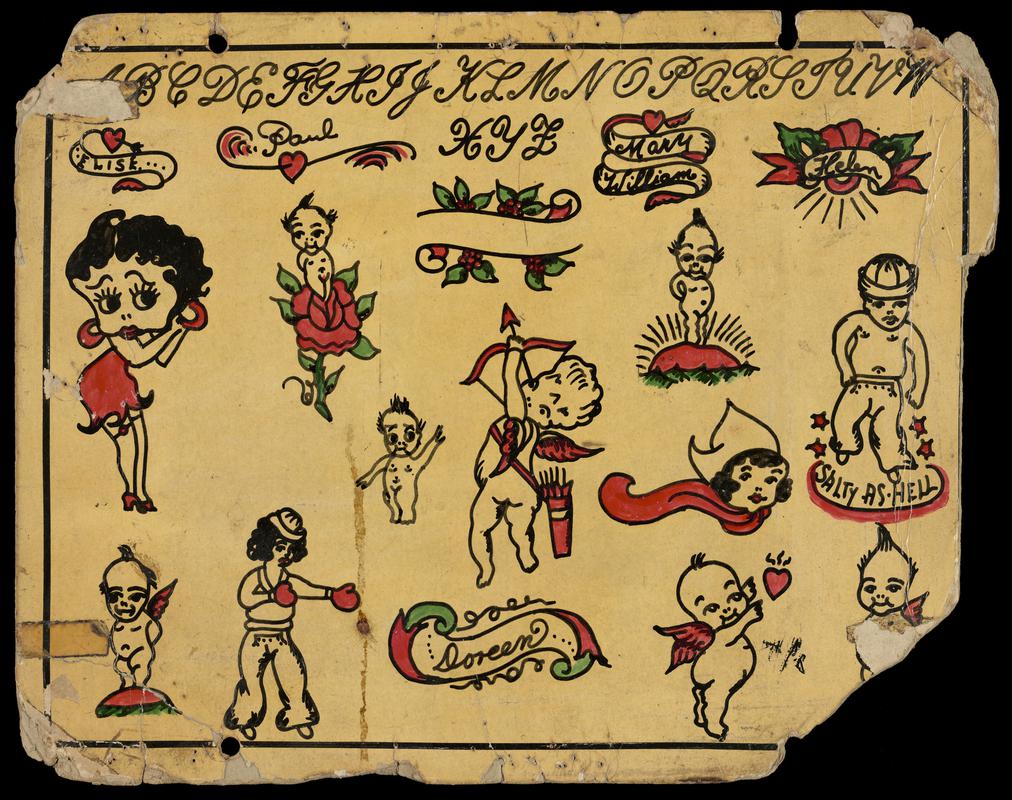 A B C D E F G H I J K L M N O P Q R S T U V W
X Y Z
ELISE
Paul
Mary
William
Helen
SALTY AS-HELL
Doreen